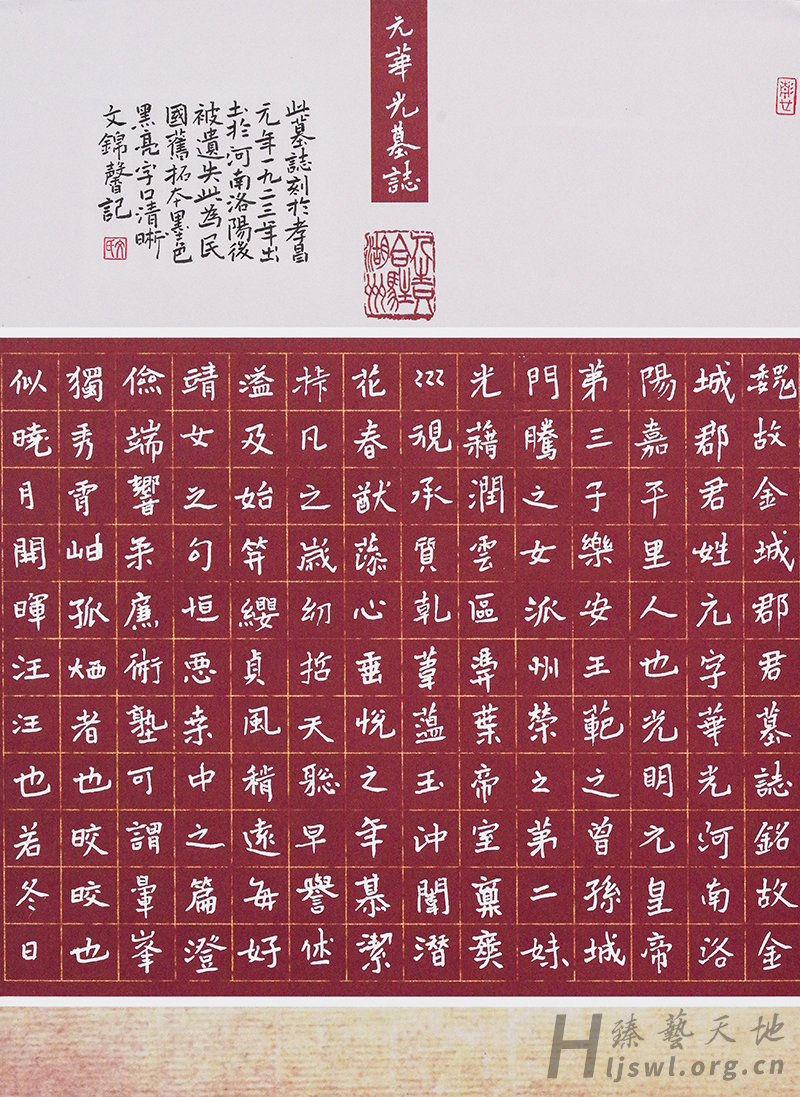 元華光墓誌
此墓誌刻於孝昌
元年一九二三年出
土於河南洛陽後
被遺失此為民
國舊拓本墨色
黑亮字口清晰
文錦馨記
魏故金城郡君墓誌銘故金
城郡君姓元字華光河南洛
陽嘉平里人也光明元皇帝
第三子樂安王範之曾孫城
門騰之女派州榮之第二妹
光藉潤雲區昇葉帝室
視承質乾蘊玉沖闈潛
花春猷蕩心垂悅之年慕潔
凡之歲幼哲天聡早譽
溢及始笄纓貞風稱遠每好
靖女之句恒悪桒中之篇澄
儉端響柔廉術塾可謂暈峯
獨秀霄岫孤者也皎皎也
似曉月開暉汪汪也若冬日
臻藝天地
Hljswl.org.cn